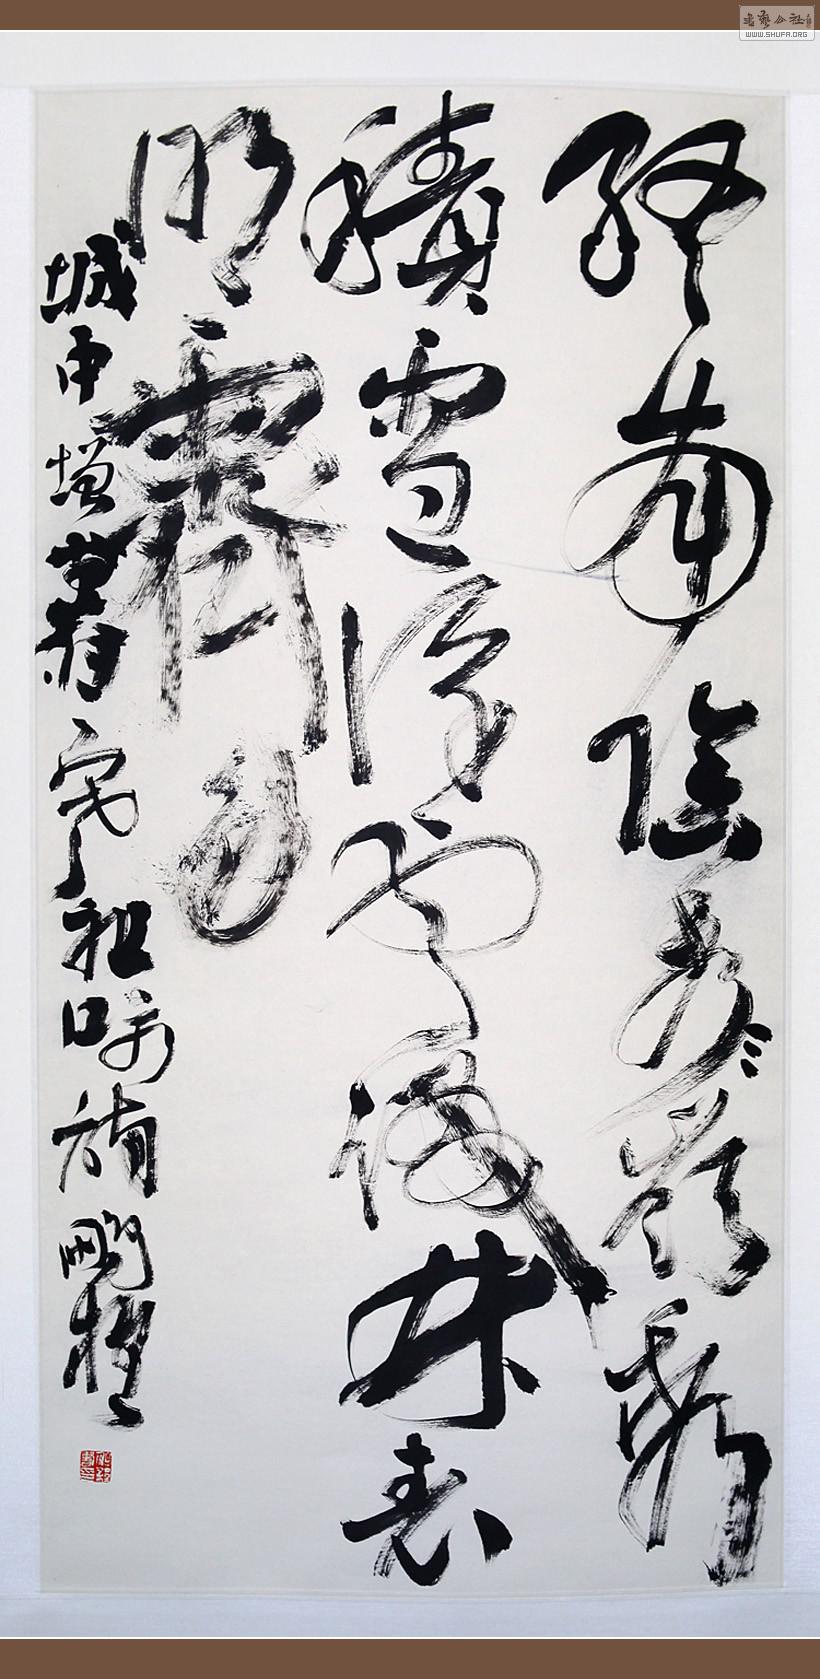 终南阴岭秀
积雪浮云端林表
明霁色
城中增暮寒 祖咏诗 鹏程
书法公社
WWW.SHUFA.ORG